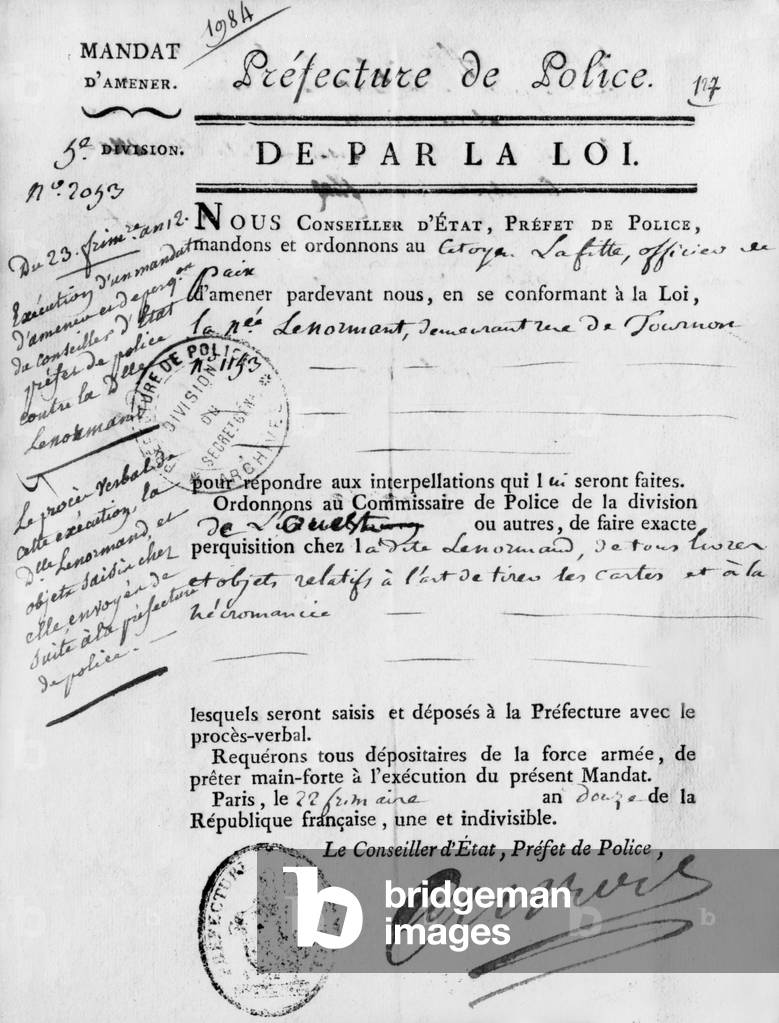 1984
MANDAT
D'AMENER.
Préfecture de Police.
127
5e. DIVISION.
No. 2053
DE PAR LA LOI.
Du 23. frimre. an 12.
Exécution d'un mandat
d'amener et de perqon
du conseiller d'État
préfet de police
contre la Dlle
Lenormand
Le procès verbal de
cette exécution, la
dlle. Lenormand, et
objets saisis chez
elle envoyés de
suite à la préfecture
de police. —
NOUS CONSEILLER D'ÉTAT, PRÉFET DE POLICE,
mandons et ordonnons au Citoyen Lafitte, officier de
paix
d'amener pardevant nous, en se conformant à la Loi,
la née Lenormant, demeurant rue de Tournon
no. 1153
PRÉFECTURE DE POLICE
DIVISION
DU
SECRET. GÉN.
ARCHIVES
pour répondre aux interpellations qui lui seront faites.
Ordonnons au Commissaire de Police de la division
de L' ou autres, de faire exacte
perquisition chez la dite Lenormand, de tous livres
et objets relatifs à l'art de tirer les cartes et à la
nécromancie
lesquels seront saisis et déposés à la Préfecture avec le
procès-verbal.
Requérons tous dépositaires de la force armée, de
prêter main-forte à l'exécution du présent Mandat.
Paris, le 22 frimaire an douze de la
République française, une et indivisible.
Le Conseiller d'État, Préfet de Police,
PRÉFECTURE
b bridgeman
images